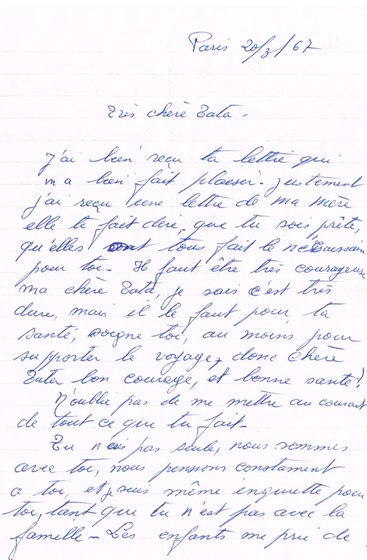 Paris 20/3/67
Très chère Tata.
J'ai bien reçu ta lettre qui
m'a bien fait plaisir. justement
j'ai reçu une lettre de ma mère
elle te fait dire, que tu sois prête,
qu'elles ont tous fait le nécessaire
pour toi. Il faut être très courageuse
ma chère Tata, je sais c'est très
dure, mais il le faut pour ta
santé, soigne toi, au moins pour
supporter le voyage, donc chère
Tata bon courage, et bonne santé!
N'oublie pas de me mettre au courant
de tout ce que tu fait.
Tu n'es pas seule, nous sommes
avec toi, nous pensons constament
a toi, et je suis même inquiette pour
toi, tant que tu n'est pas avec la
famille - Les enfants me prie de